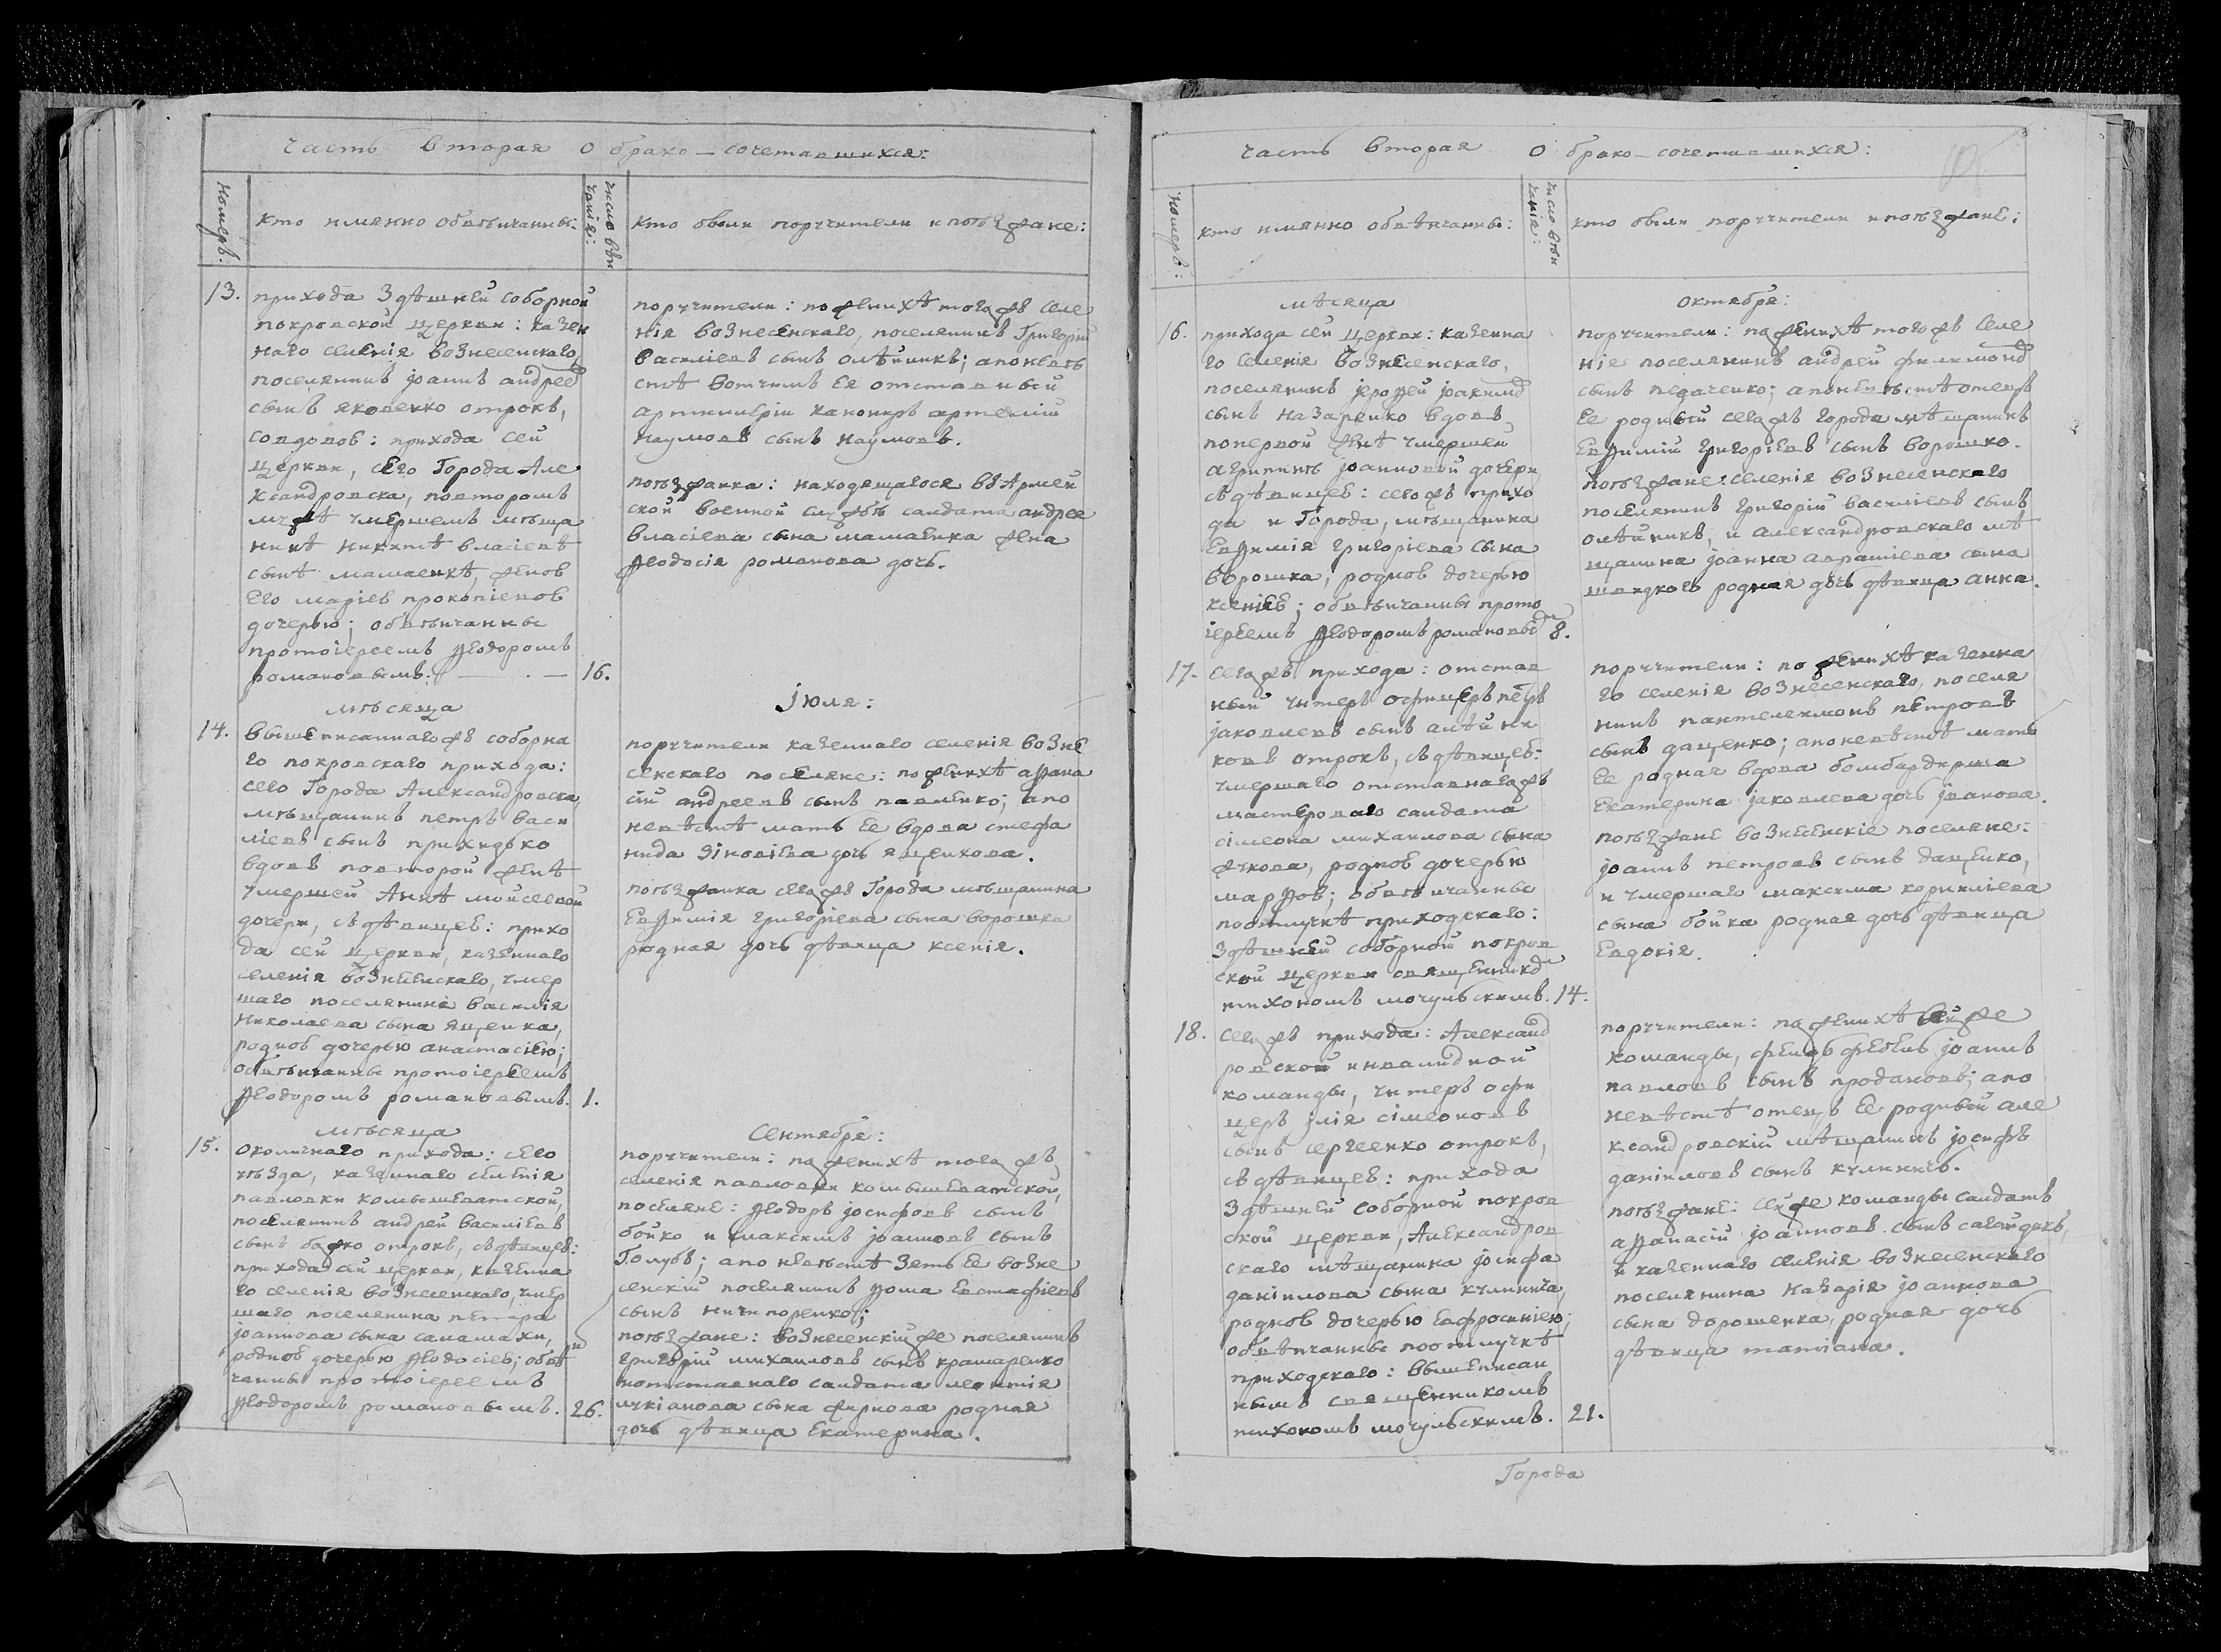 часть вторая о брако-сочетавшихся:
номеръ.
кто имянно обвѣнчанны:
число вѣн
чанія:
кто были поручители и поѣзжане:
13. прихода здѣшней соборной
покровской церкви: казен
наго селенія вознесенскаго,
поселянинъ іоаннъ андреевъ
сынъ яковенко отрокъ,
со вдовою: прихода сей
церкви, сего Города Але
ксандровска, по второмъ
мужѣ умершемъ мѣща
нинѣ никитѣ власіевѣ
сынѣ мамаенкѣ, женою
его маріею прокопіевою
дочерью; обвѣнчанны
протоіереемъ Ѳеодоромъ
романовымъ. — . — 16.
поручители: по женихѣ тогожъ селе
нія вознесенскаго, поселянинъ Григорій
василіевъ сынъ олѣйникъ; а по невѣ
стѣ вотчимъ ея отставный
артиллеріи канониръ артемій
наумовъ сынъ наумовъ.
поѣзжанка: находящагося въ Армей
ской военной службѣ салдата андрея
власіева сына мамаенка жена
Ѳеодосія романова дочь.
мѣсяца
Іюля:
14. вышеписаннагожъ соборна
го покровскаго прихода:
сего Города Александровска
мѣщанинъ петръ васи
ліевъ сынъ прихидько
вдовъ по второй женѣ
умершей Аннѣ мойсеевой
дочери, съ дѣвицею: прихо
да сей церкви, казеннаго
селенія вознесенскаго, умер
шаго поселянина василія
николаева сына яценка,
родною дочерью анастасіею;
обвѣнчанны протоіереемъ
Ѳеодоромъ романовымъ. 1.
поручители казеннаго селенія возне
сенскаго поселяне: по женихѣ аѳана
сій андреевъ сынъ павленко; а по
невѣстѣ мать ее вдова стефа
нида зіновіева дочь яценкова.
поѣзжанка сегожъ Города мѣщанина
Евѳимія григоріева сына ворошка
родная дочь дѣвица ксенія.
мѣсяца
Сентября:
15. околичнаго прихода: сего
уѣзда, казеннаго селенія
павловки комышеватской,
поселянинъ андрей василіевъ
сынъ бажко отрокъ, съ дѣвицею:
прихода сей церкви, казенна
го селенія вознесенскаго, умер
шаго поселянина петра
іоаннова сына саламахи,
родною дочерью Ѳеодосіею; обвѣн
чанны протоіереемъ
Ѳеодоромъ романовымъ. 26.
поручители: по женихѣ тогожъ,
селенія павловки комышеватской,
поселяне: Ѳеодоръ іосифовъ сынъ
бойко и максимъ іоанновъ сынъ
Голубъ; а по невѣстѣ зять ее возне
сенскій поселянинъ Ѳома Евстафіевъ
сынъ ничипоренко;
поѣзжане: вознесенскій же поселянинъ
григорій михаиловъ сынъ крамаренко
и отставнаго салдата леонтія
лукіанова сына жиркова родная
дочь дѣвица Екатерина.
часть вторая о брако-сочетавшихся:
номеръ:
кто имянно обвѣнчанны:
число вѣн
чанія:
кто были поручители и поѣзжане:
мѣсяца
октября:
16. прихода сей церкви: казенна
го селенія вознесенскаго,
поселянинъ іероѳей іоакимовъ
сынъ назаренко вдовъ
по первой женѣ умершей
агрипинѣ іоанновой дочери
съ дѣвицею: сегожъ прихо
да и Города, мѣщанина
Евѳимія григоріева сына
ворошка, родною дочерью
ксеніею; обвѣнчанны прото
іереемъ Ѳеодоромъ романовымъ 8.
поручители: по женихѣ тогожъ селе
нія поселянинъ андрей филимоновъ
сынъ педаченко; а по невѣстѣ отецъ
ее родный сегожъ города мѣщанинъ
Евѳимій григоріевъ сынъ ворошко.
поѣзжане: селенія вознесенскаго
поселянинъ григорій василіевъ сынъ
олѣйникъ, и александровскаго мѣ
щанина іоанна авраміева сына
родная дочь дѣвица анна.
17. сегожъ прихода: отстав
ный унтеръ офицеръ петръ
іаковлевъ сынъ алѣйни
ковъ отрокъ, съ дѣвицею:
умершаго отставнагожъ
мастероваго салдата
сімеона михаилова сына
жукова, родною дочерью
марѳою; обвѣнчанны
по отлучкѣ приходскаго:
здѣшней соборной покров
ской церкви священникомъ
тихономъ мочульскимъ. 14.
поручители: по женихѣ казенна
го селенія вознесенскаго, поселя
нинъ пантелеимонъ петровъ
сынъ даценко; а по невѣстѣ мать
ее родная вдова бомбардирша
Екатерина іаковлева дочь жванова.
поѣзжане вознесенскіе поселяне:
іоаннъ петровъ сынъ даценко,
и умершаго максима корниліева
сына бойка родная дочь дѣвица
Евдокія.
18. сегожъ прихода: Александ
ровской инвалидной
команды, унтеръ офи
церъ ілія сімеоновъ
сынъ сергеенко отрокъ,
съ дѣвицею: прихода
здѣшней соборной покров
ской церкви, Александров
скаго мѣщанина іосифа
даніилова сына кулинича,
родною дочерью евфросиніею;
обвѣнчанны по отлучкѣ
приходскаго: вышеписан
нымъ священникомъ
тихономъ мочульскимъ. 21.
поручители: по женихѣ сей же
команды, фелдъ фебель іоаннъ
павловъ сынъ продановъ; а по
невѣстѣ отецъ ее родный але
ксандровскій мѣщанинъ іосифъ
даніиловъ сынъ кулиничъ.
поѣзжане: сей же команды салдатъ
аѳанасій іоанновъ сынъ сагайдакъ,
и казеннаго селенія вознесенскаго
поселянина назарія іоаннова
сына дорошенка, родная дочь
дѣвица татіана.
Города